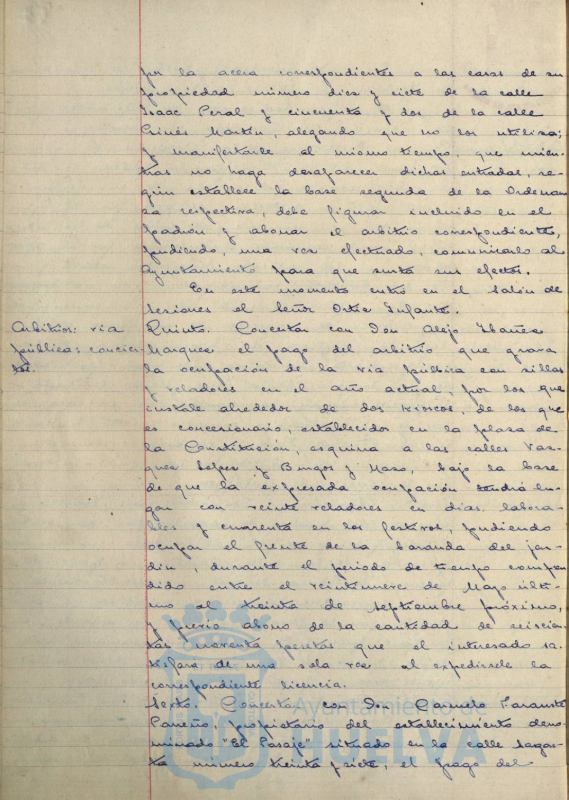 por la acera correspondientes a las casas de su
propiedad número diez y siete de la calle
Isaac Peral y cincuenta y dos de la calle
Ginés Martín, alegando que no los utiliza;
y manifestarle al mismo tiempo, que mien-
tras no haga desaparecer dichas entradas, se-
gún establece la base segunda de la Ordenan-
za respectiva, debe figurar incluido en el
padrón y abonar el arbitrio correspondiente,
pudiendo, una vez efectuado, comunicarlo al
Ayuntamiento para que surta sus efectos.
En este momento entró en el Salón de
Sesiones el Señor Ortiz Infante.
Arbitrios: vía
pública: concier-
to.
Quinto. Concertar con Don Alejo Ibañez
Marquez el pago del arbitrio que grava
la ocupación de la vía pública con sillas
y veladores en el año actual, por los que
instale alrededor de dos kioscos, de los que
es concesionario, establecidos en la plaza de
la Constitución, esquina a las calles Vaz-
quez Lopez y Burgos y Mazo, bajo la base
de que la expresada ocupación tendrá lu-
gar con veinte veladores en días labora-
bles y cuarenta en los festivos, pudiendo
ocupar el frente de la baranda del jar-
dín, durante el período de tiempo compren
dido entre el veintinueve de Mayo últi-
mo al treinta de septiembre próximo,
y previo abono de la cantidad de seiscien-
tas noventa pesetas que el interesado sa-
tisfará de una sola vez al expedírsele la
correspondiente licencia.
Sexto. Concertar con Don Carmelo
Pareño, propietario del establecimiento deno-
minado "El Pasaje" situado en la calle Sagas-
ta número treinta y siete, el pago del
Ayuntamiento de
HUELVA